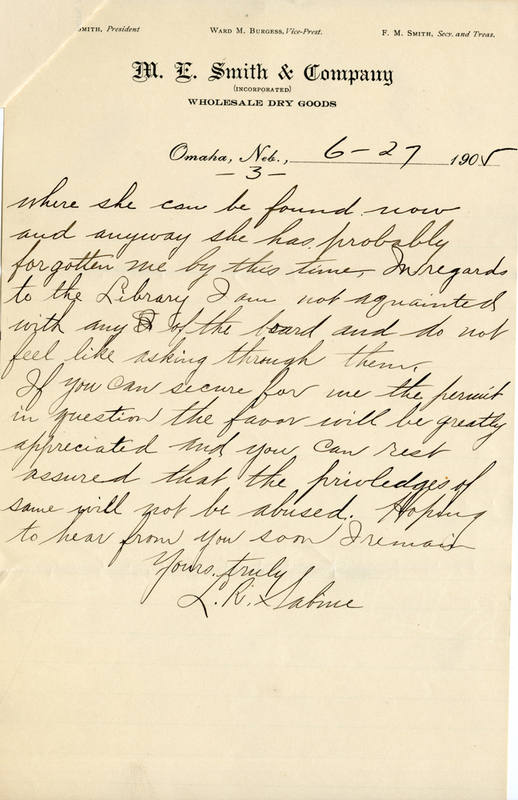 SMITH, President WARD M. BURGESS, Vice-Prest. F. M. SMITH, Secy. and Treas.
M. E. Smith & Company
(INCORPORATED)
WHOLESALE DRY GOODS
Omaha, Neb., 6-27 1905
-3-
where she can be found now
and anyway she has probably
forgotten me by this time. In regards
to the Library I am not aquainted
with any of the board and do not
feel like asking through them.
If you can secure for me the permit
in question the favor will be greatly
appreciated and you can rest
assured that the priviledges of
same will not be abused. Hoping
to hear from you soon I remain
Yours truly
L. R. Sabine